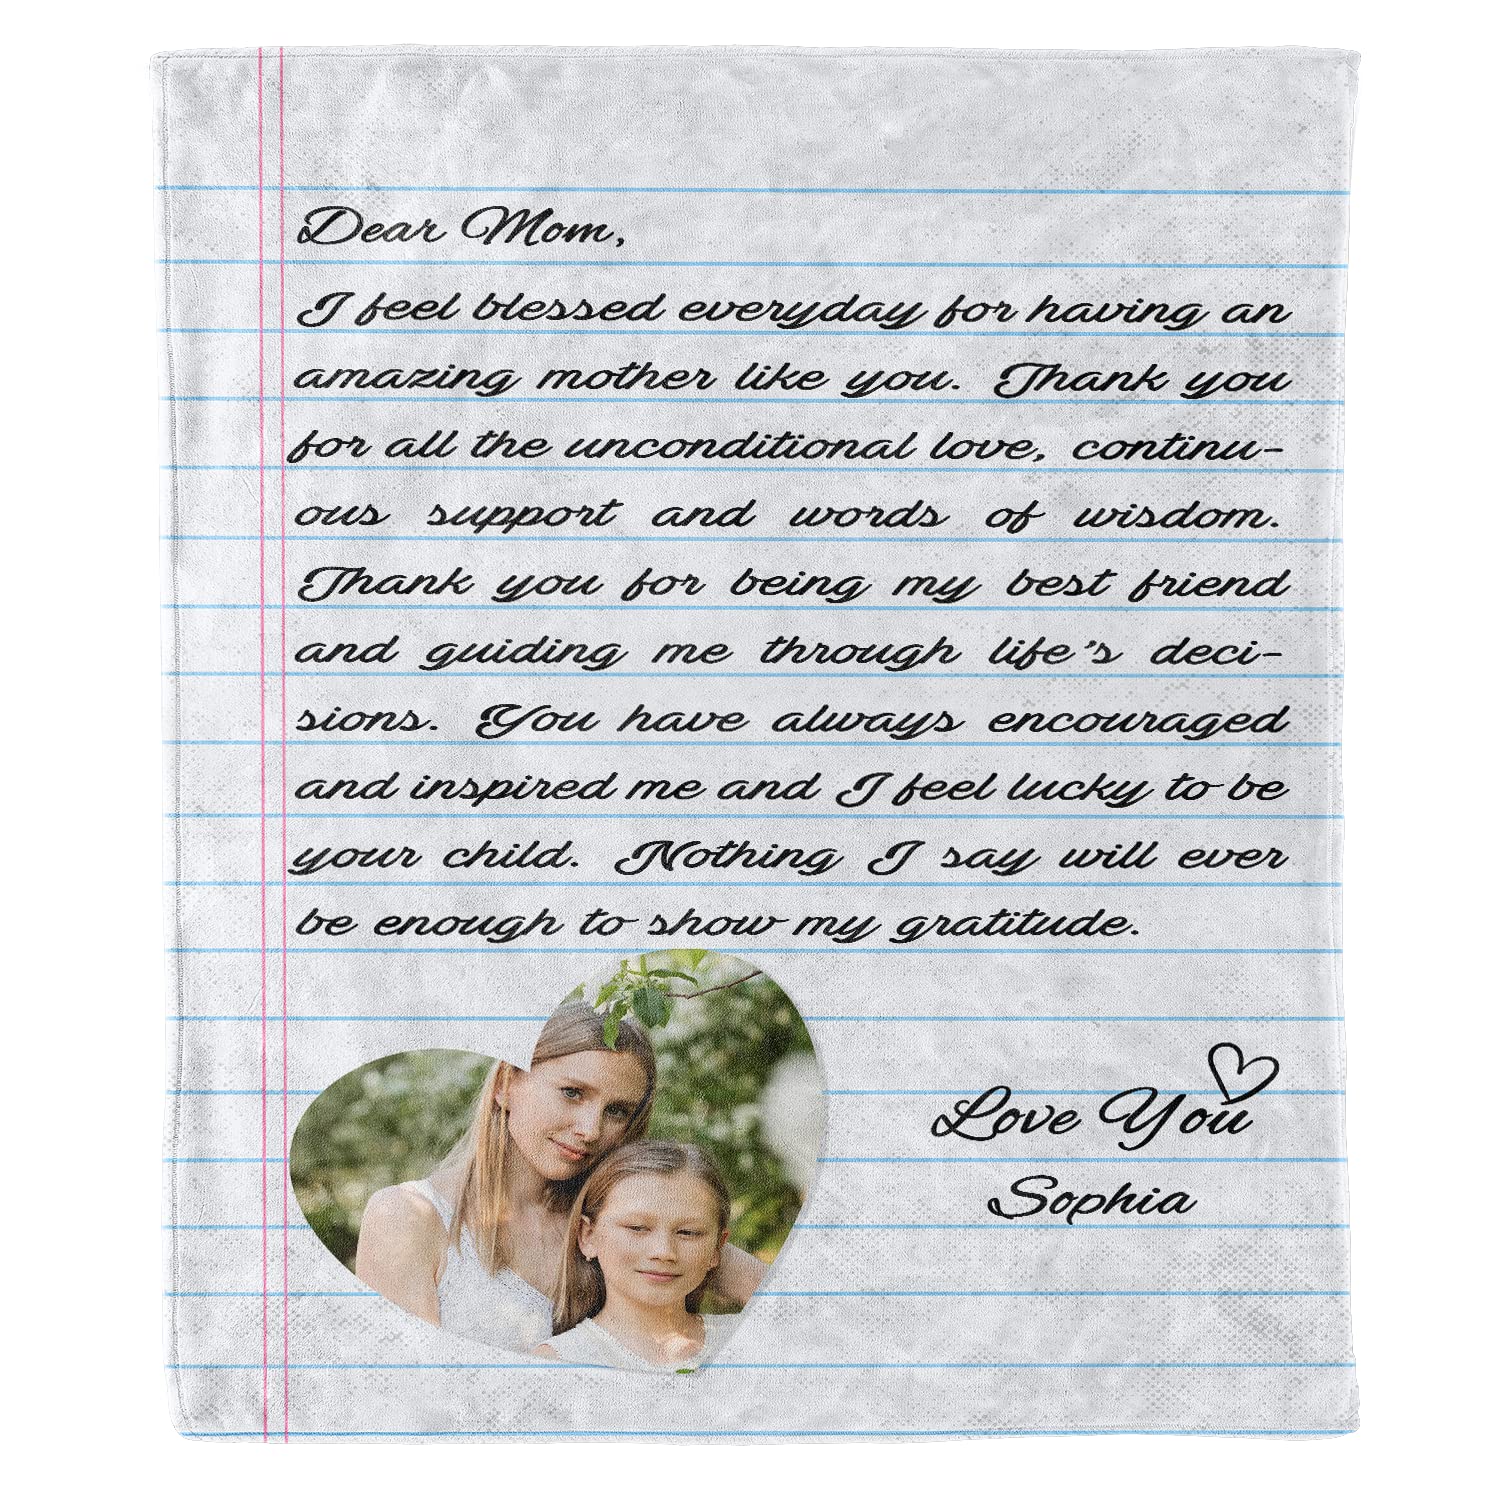 Dear Mom,
I feel blessed everyday for having an
amazing mother like you. Thank you
for all the unconditional love, continu-
ous support and words of wisdom.
Thank you for being my best friend
and guiding me through life's deci-
sions. You have always encouraged
and inspired me and I feel lucky to be
your child. Nothing I say will ever
be enough to show my gratitude.
Love You
Sophia